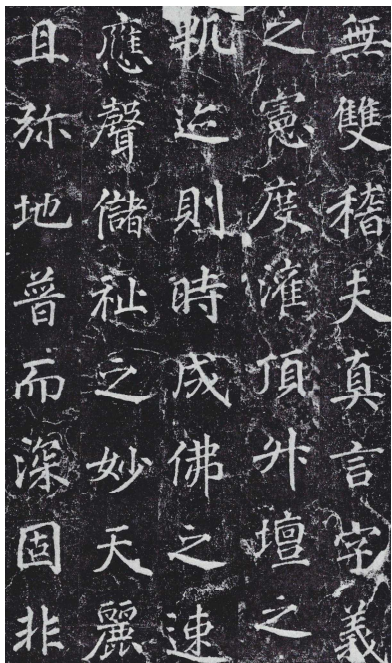 無雙稽夫真言字義
之憲度灌頂升壇之
軌迹則時成佛之速
應聲儲祉之妙天麗
且弥地普而深固非